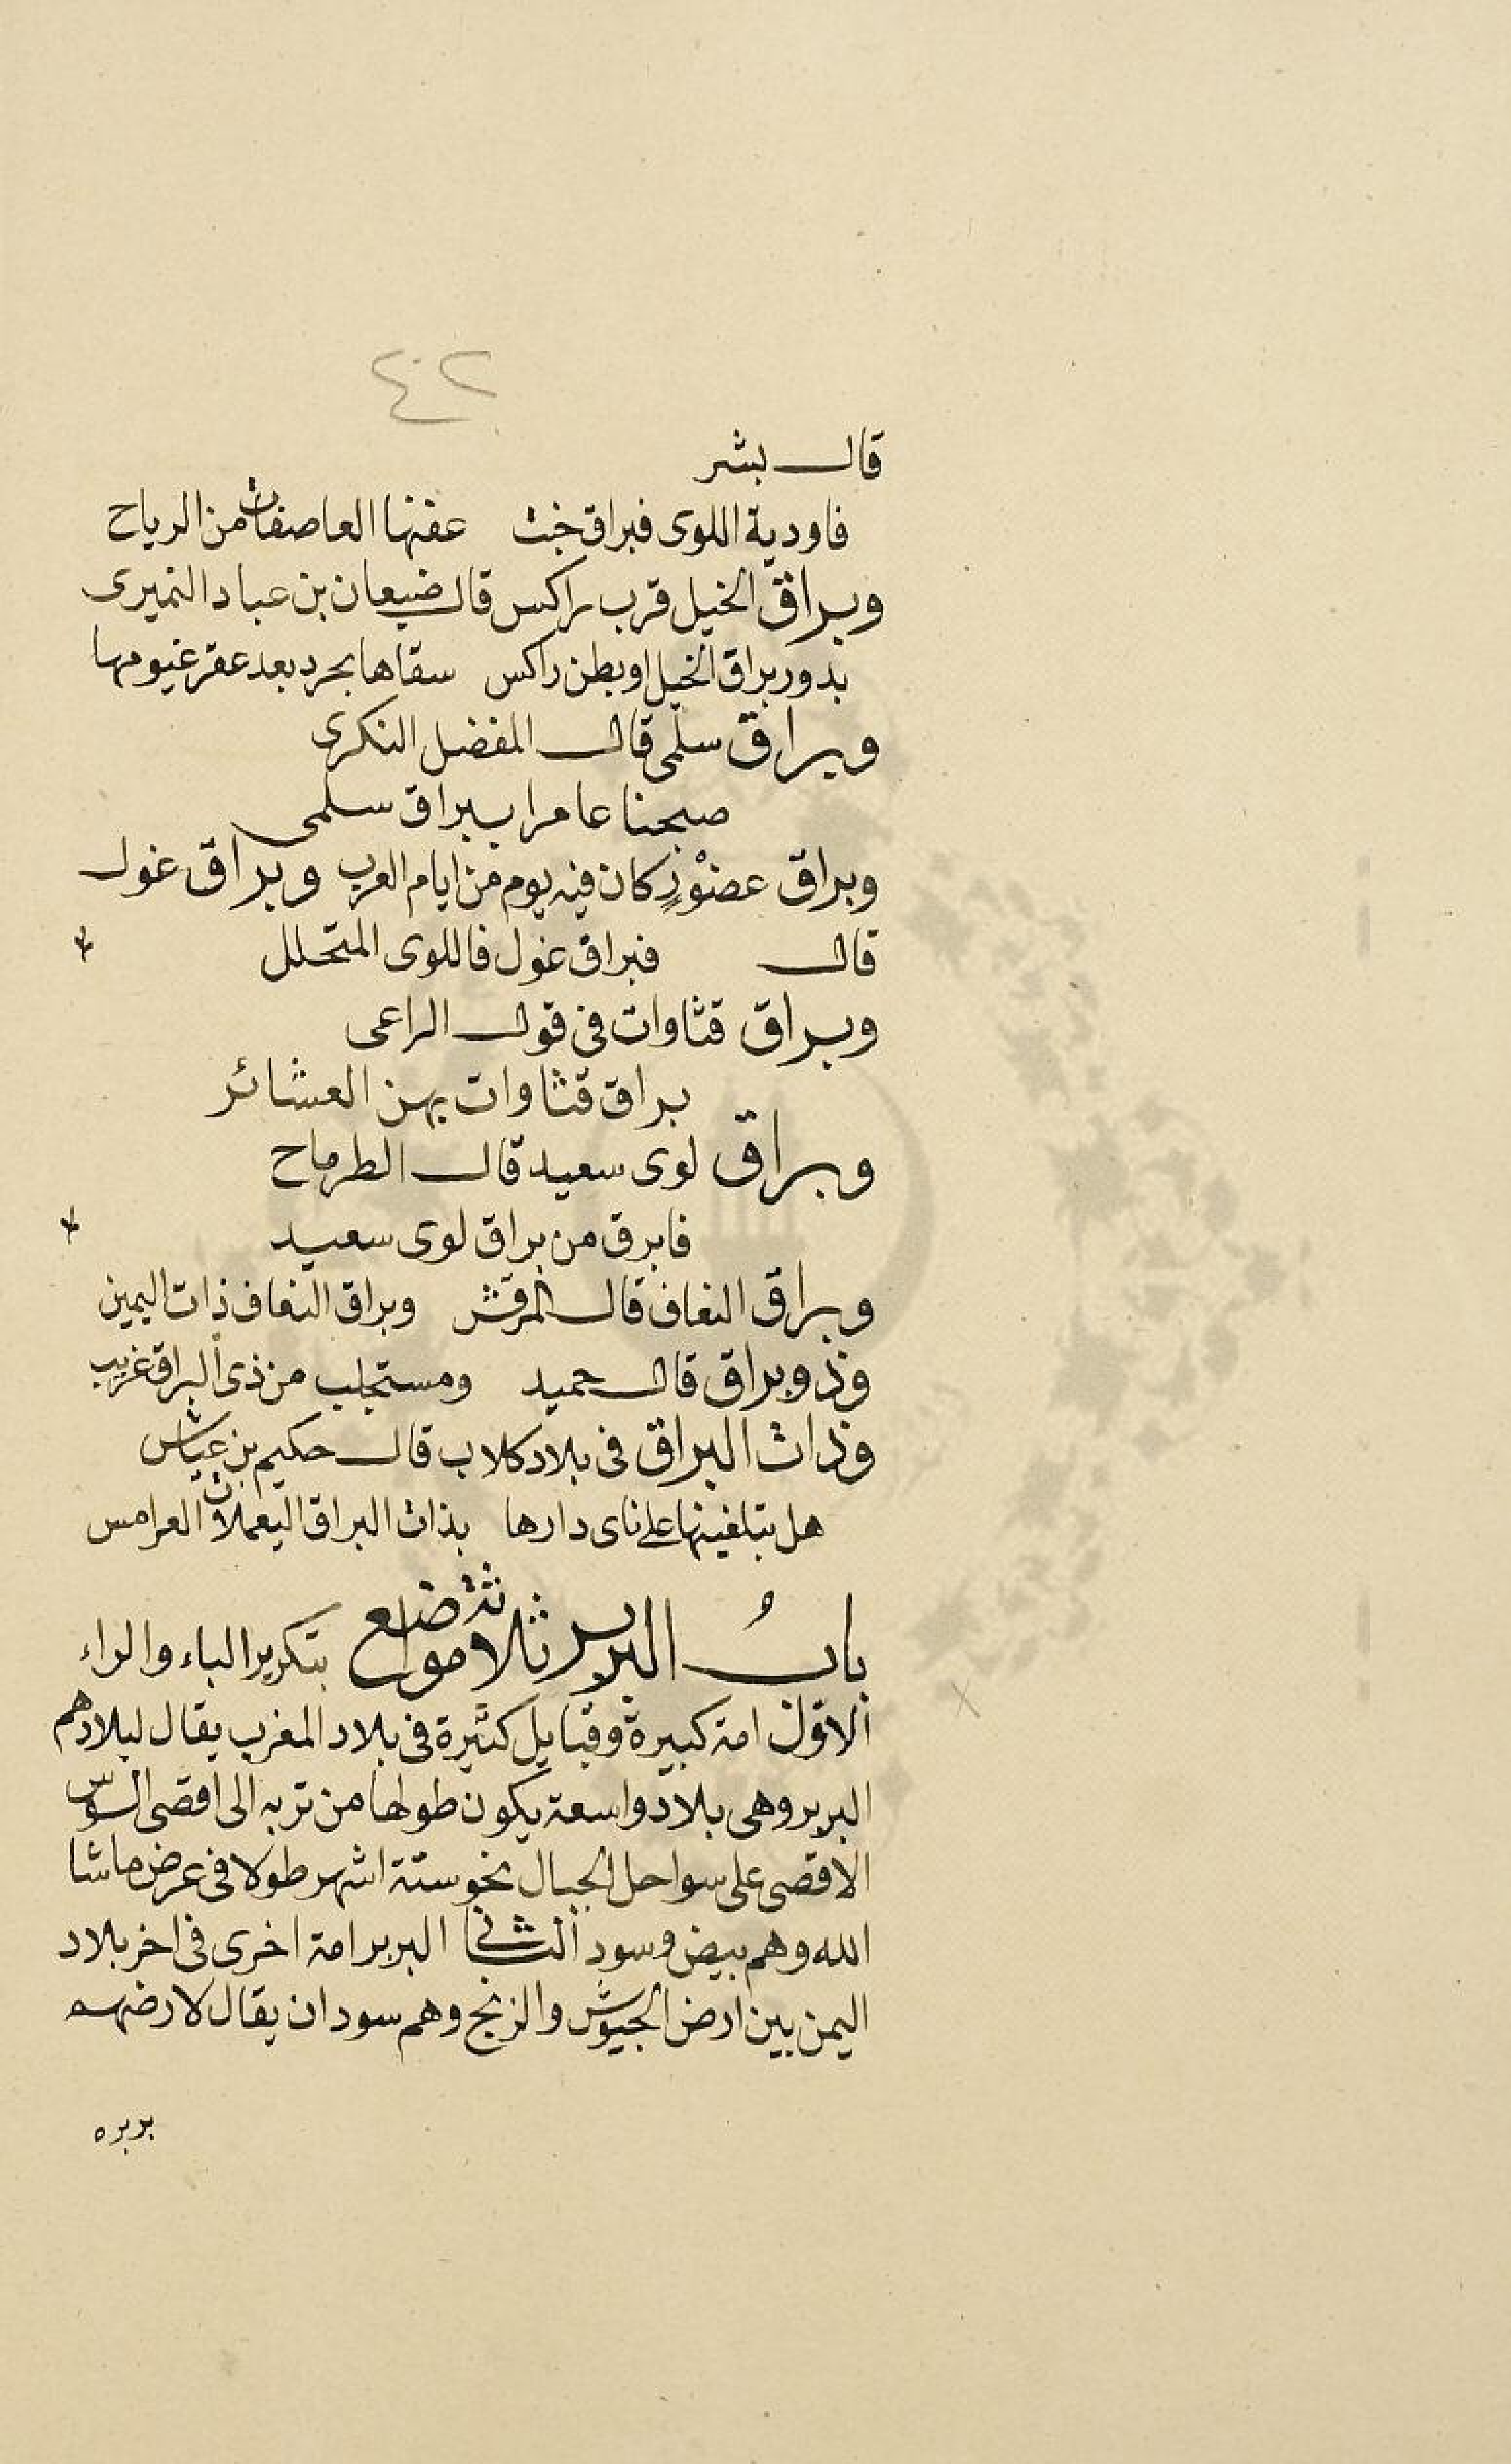 ٤٠٢
قال بشر
فاودية اللوى فبراق خبت عفتها العاصفات من الرياح
وبراق الخيل قرب راكس قال ضبعان بن عباد النميرى
بدور براق الخيل او بطن راكس سقاها بجرد بعد عقر غيومها
وبراق سلمى قال المفضل النكرى
صبحنا عامرا ببراق سلمى
وبراق عضْوَرٍ كان فيه يوم من ايام العرب وبراق غول
قال فبراق غول فاللوى المتحلل
وبراق قثاوات فى قول الراعى
براق قثاوات بهن العشائر
وبراق لوى سعيد قال الطرماح
فابرق من براق لوى سعيد
وبراق النعاف قال المرقش وبراق النعاف ذات اليمين
وذو براق قال حميد ومستجلب من ذى البراق غريب
وذات البراق فى بلاد كلاب قال حكيم بن عياش
هل تبلغينها على ناى دارها بذات البراق اليعملات العرامس
بابُ البربر ثلاثة مواضع بتكرير الباء والراء
الاول امة كبيرة وقبايل كثيرة فى بلاد المغرب يقال لبلادهم
البربر وهى بلاد واسعة يكون طولها من تربه الى اقصى السوس
الاقصى على سواحل الجبال نحو ستة اشهر طولا فى عرض ماشا
الله وهم بيض وسود الثانى البربر امة اخرى فى اخر بلاد
اليمن بين ارض الجيوش والزنج وهم سودان يقال لارضهم
بربره